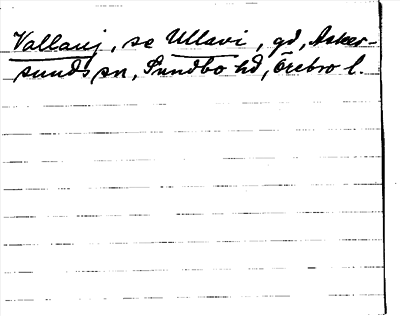 Vallavi, se Ullavi, gd, Asker-
sunds sn, Sundbo hd, Örebro l.